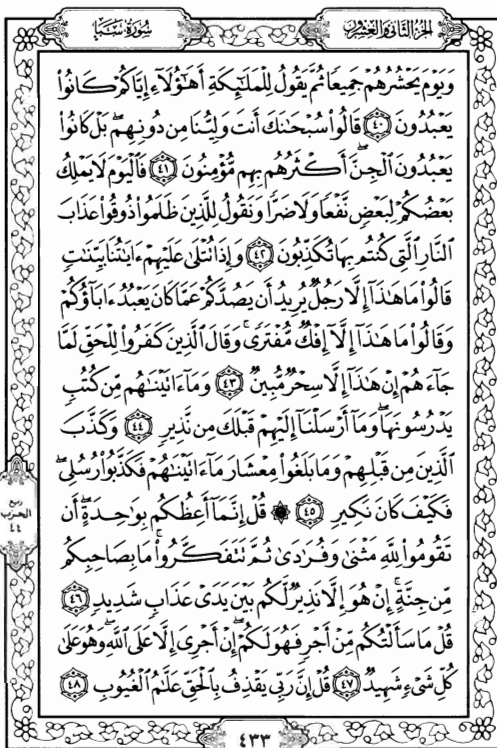 الجزء الثاني والعشرون
سورة سبأ
وَيَوْمَ يَحْشُرُهُمْ جَمِيعًا ثُمَّ يَقُولُ لِلْمَلَـٰٓئِكَةِ أَهَـٰٓؤُلَآءِ إِيَّاكُمْ كَانُوا۟
يَعْبُدُونَ ٤٠ قَالُوا۟ سُبْحَـٰنَكَ أَنتَ وَلِيُّنَا مِن دُونِهِم ۖ بَلْ كَانُوا۟
يَعْبُدُونَ ٱلْجِنَّ ۖ أَكْثَرُهُم بِهِم مُّؤْمِنُونَ ٤١ فَٱلْيَوْمَ لَا يَمْلِكُ
بَعْضُكُمْ لِبَعْضٍ نَّفْعًا وَلَا ضَرًّا وَنَقُولُ لِلَّذِينَ ظَلَمُوا۟ ذُوقُوا۟ عَذَابَ
ٱلنَّارِ ٱلَّتِى كُنتُم بِهَا تُكَذِّبُونَ ٤٢ وَإِذَا تُتْلَىٰ عَلَيْهِمْ ءَايَـٰتُنَا بَيِّنَـٰتٍ
قَالُوا۟ مَا هَـٰذَآ إِلَّا رَجُلٌ يُرِيدُ أَن يَصُدَّكُمْ عَمَّا كَانَ يَعْبُدُ ءَابَآؤُكُمْ
وَقَالُوا۟ مَا هَـٰذَآ إِلَّآ إِفْكٌ مُّفْتَرًى ۚ وَقَالَ ٱلَّذِينَ كَفَرُوا۟ لِلْحَقِّ لَمَّا
جَآءَهُمْ إِنْ هَـٰذَآ إِلَّا سِحْرٌ مُّبِينٌ ٤٣ وَمَآ ءَاتَيْنَـٰهُم مِّن كُتُبٍ
يَدْرُسُونَهَا ۖ وَمَآ أَرْسَلْنَآ إِلَيْهِمْ قَبْلَكَ مِن نَّذِيرٍ ٤٤ وَكَذَّبَ
ٱلَّذِينَ مِن قَبْلِهِمْ وَمَا بَلَغُوا۟ مِعْشَارَ مَآ ءَاتَيْنَـٰهُمْ فَكَذَّبُوا۟ رُسُلِى ۖ
فَكَيْفَ كَانَ نَكِيرِ ٤٥ ۞ قُلْ إِنَّمَآ أَعِظُكُم بِوَٰحِدَةٍ ۖ أَن
تَقُومُوا۟ لِلَّهِ مَثْنَىٰ وَفُرَٰدَىٰ ثُمَّ تَتَفَكَّرُوا۟ ۚ مَا بِصَاحِبِكُم
مِّن جِنَّةٍ ۚ إِنْ هُوَ إِلَّا نَذِيرٌ لَّكُم بَيْنَ يَدَىْ عَذَابٍ شَدِيدٍ ٤٦
قُلْ مَا سَأَلْتُكُم مِّنْ أَجْرٍ فَهُوَ لَكُمْ ۖ إِنْ أَجْرِىَ إِلَّا عَلَى ٱللَّهِ ۖ وَهُوَ عَلَىٰ
كُلِّ شَىْءٍ شَهِيدٌ ٤٧ قُلْ إِنَّ رَبِّى يَقْذِفُ بِٱلْحَقِّ عَلَّـٰمُ ٱلْغُيُوبِ ٤٨
ربع
الحزب
٤٤
٤٣٣